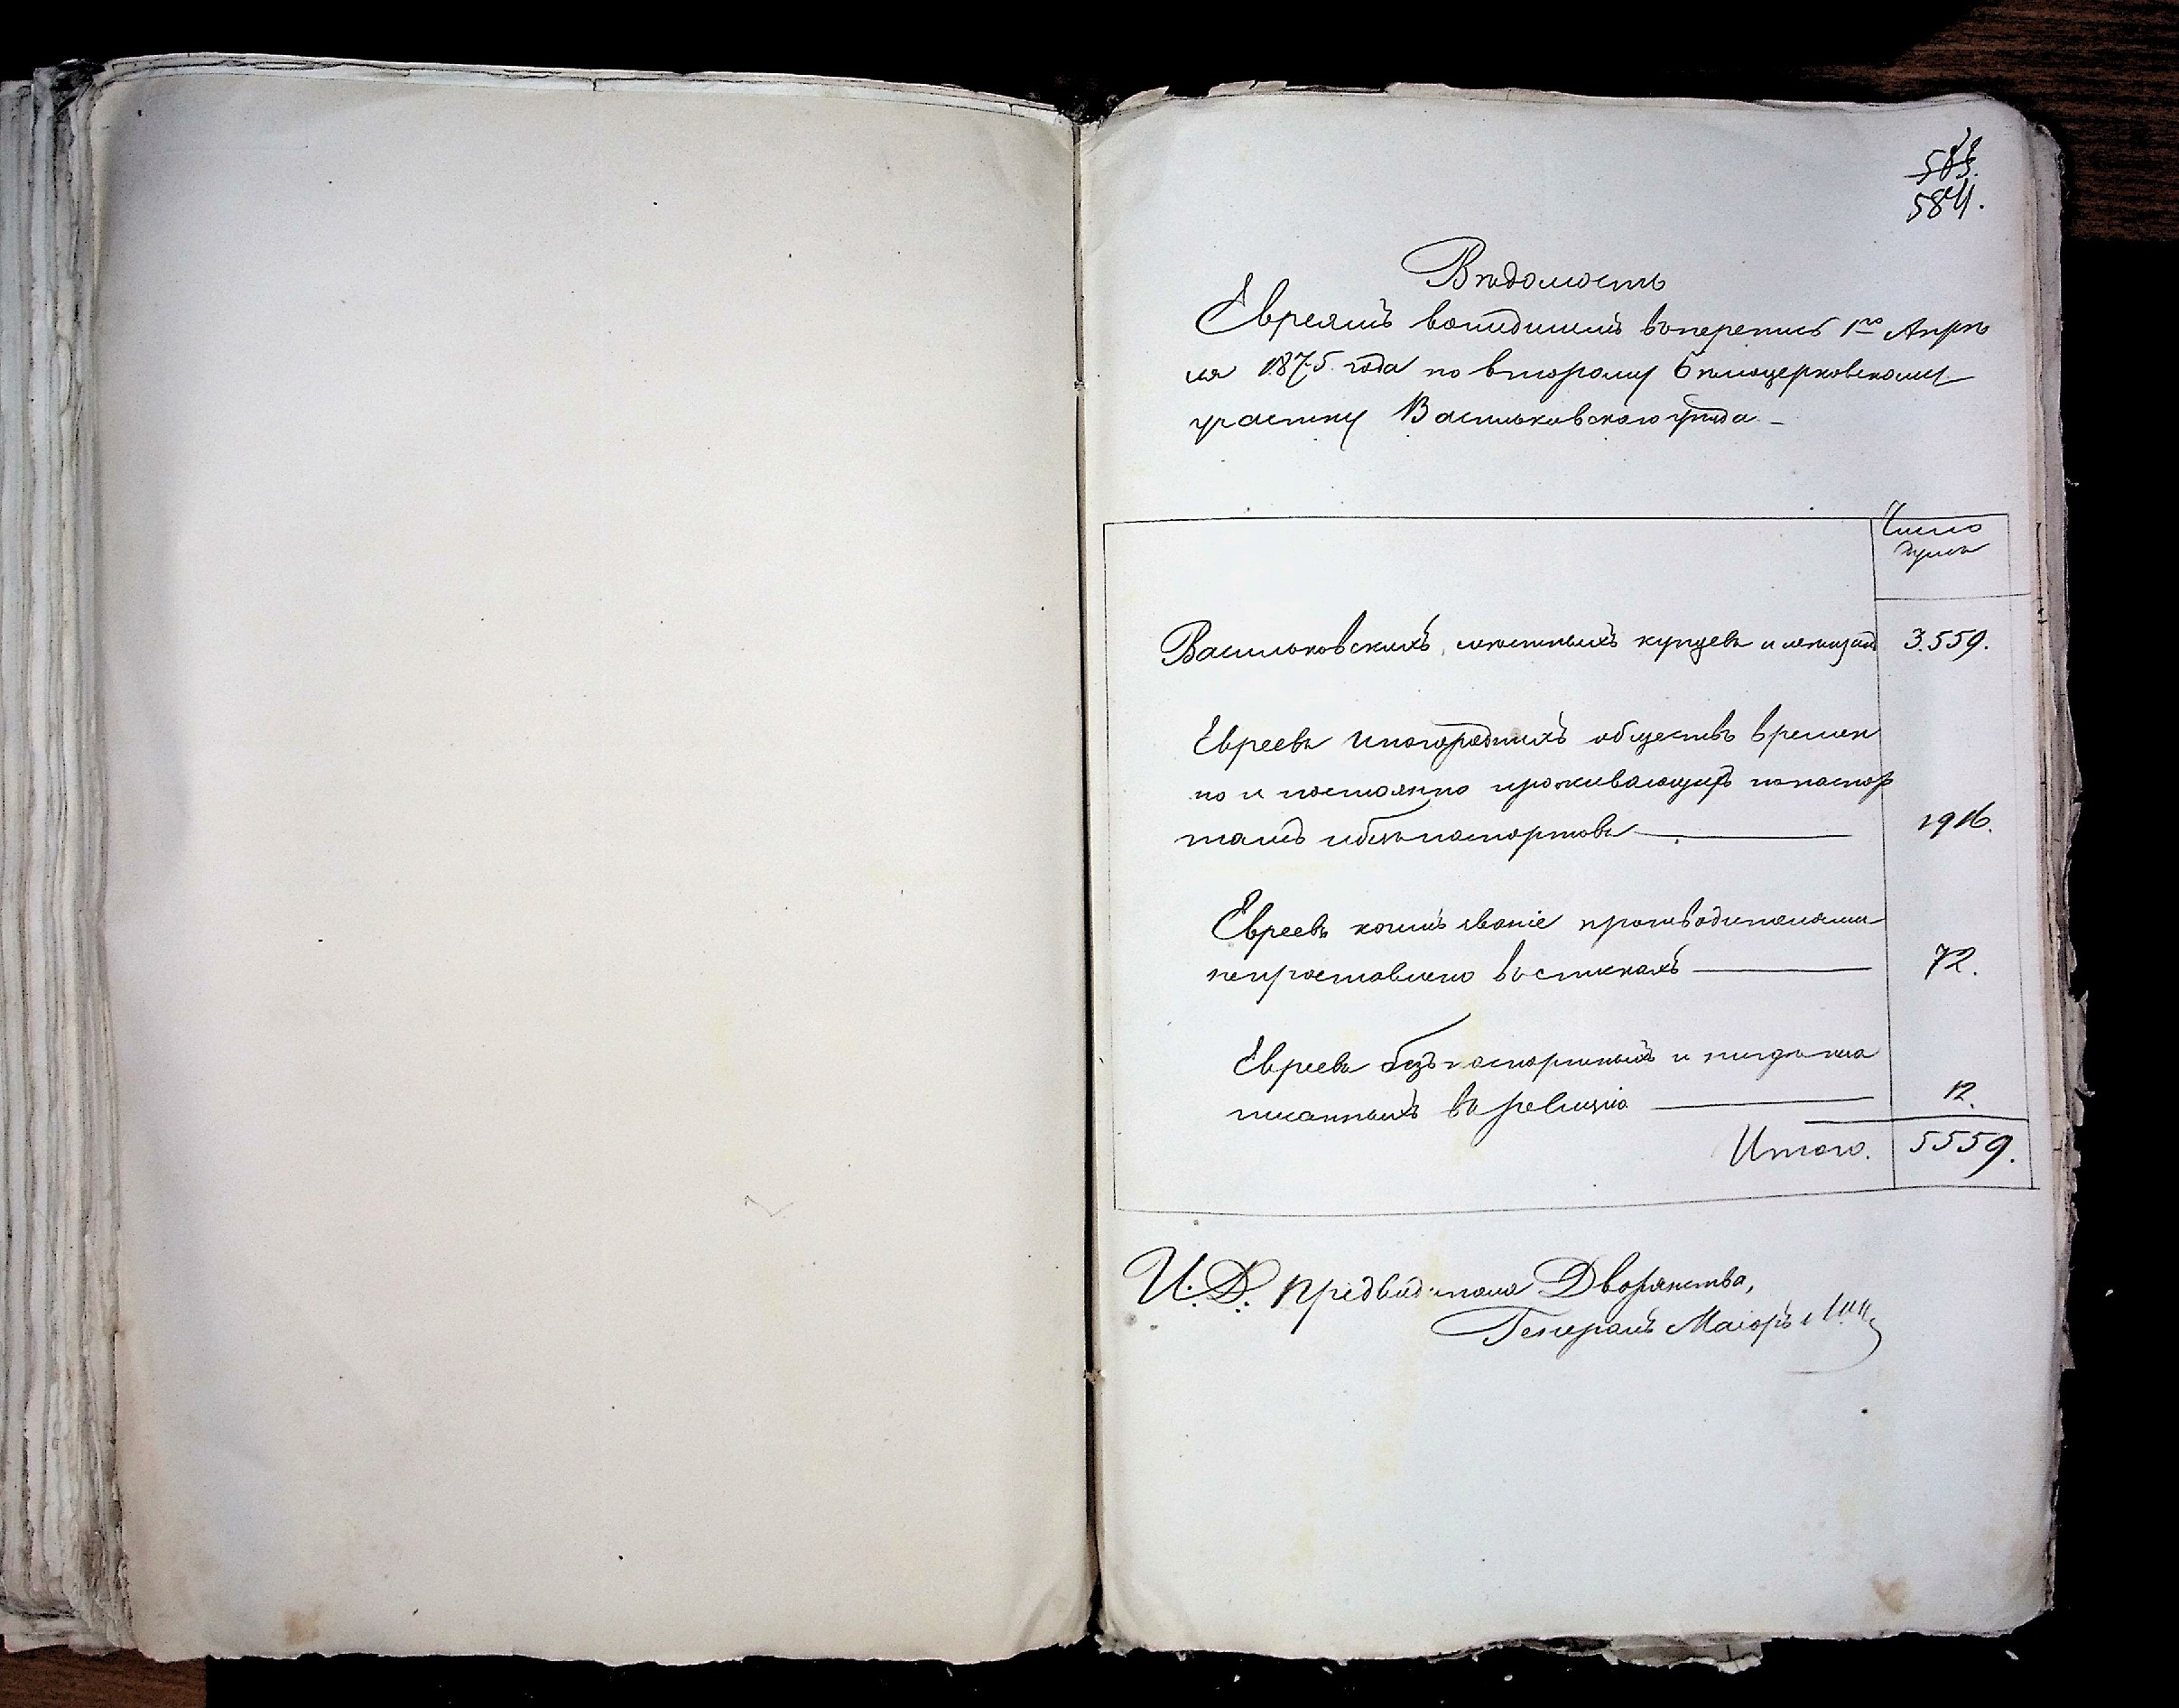 584.
Вѣдомость
Евреямъ вошедшимъ въ перепись 1го Апрѣ
ля 1875 года по второму Бѣлоцерковскому
участку Васильковского уѣзда
Число
душъ
Васильковскихъ, мѣстныхъ купцевъ и мѣщанъ 3.559.
Евреевъ иногородныхъ обществъ времен
но и постоянно проживающихъ по паспор
тамъ и безъ паспортовъ 1916.
Евреевъ коимъ званіе производителями
непроставлено въ спискахъ 72.
Евреевъ безъпаспортныхъ и нигдѣ неза
писанныхъ въ ревизію 12.
Итого. 5559.
И. Д. Предводителя Дворянства,
Генералъ Маіоръ